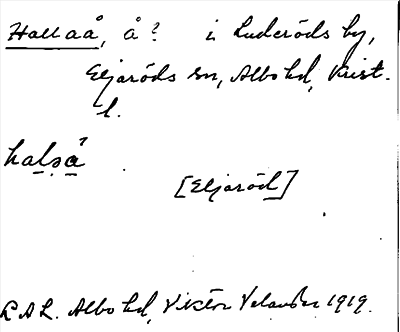 Hallaå, å? i Luderöds by,
Eljaröds sn, Albo hd, Krist.
l.
halsa
[Eljaröd]
L A L. Albo hd, Viktor Velander 1919.